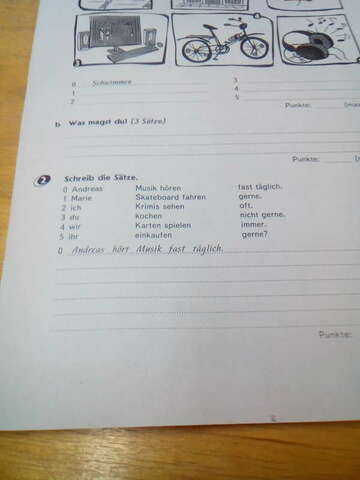 0 Schwimmen 3
1 4
2 5
Punkte:
b Was magst du? (3 Sätze)
Punkte:
2 Schreib die Sätze.
0 Andreas Musik hören fast täglich.
1 Marie Skateboard fahren gerne.
2 ich Krimis sehen oft.
3 du kochen nicht gerne.
4 wir Karten spielen immer.
5 ihr einkaufen gerne?
0 Andreas hört Musik fast täglich.
Punkte: